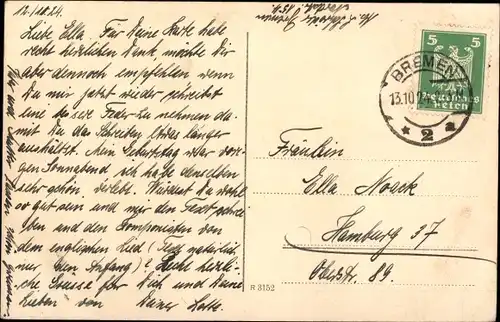 12./10.24.
Liebe Ella. Für Deine Karte habe
recht herzlichen Dank, möchte Dir
aber dennoch empfehlen wenn
Du mir jetzt wieder schreibst
eine bessere Feder zu nehmen da-
mit Du das Schreiben etwas länger
aushältst. Mein Geburtstag war vori-
gen Sonnabend, ich habe denselben
sehr schön verlebt. Würdest Du wohl
so gut sein und mir den Text schrei-
ben und den Komponisten von
dem englischen Lied (Text natürlich
nur den Anfang). Recht herzli-
che Grüsse für Dich und Deine
Lieben von Deiner Lotte.
5 5
Deutsches
Reich
BREMEN
13.10.24
* 2 a
Fräulein
Ella Noack
Hamburg 37
Oberstr. 89.
R 3152